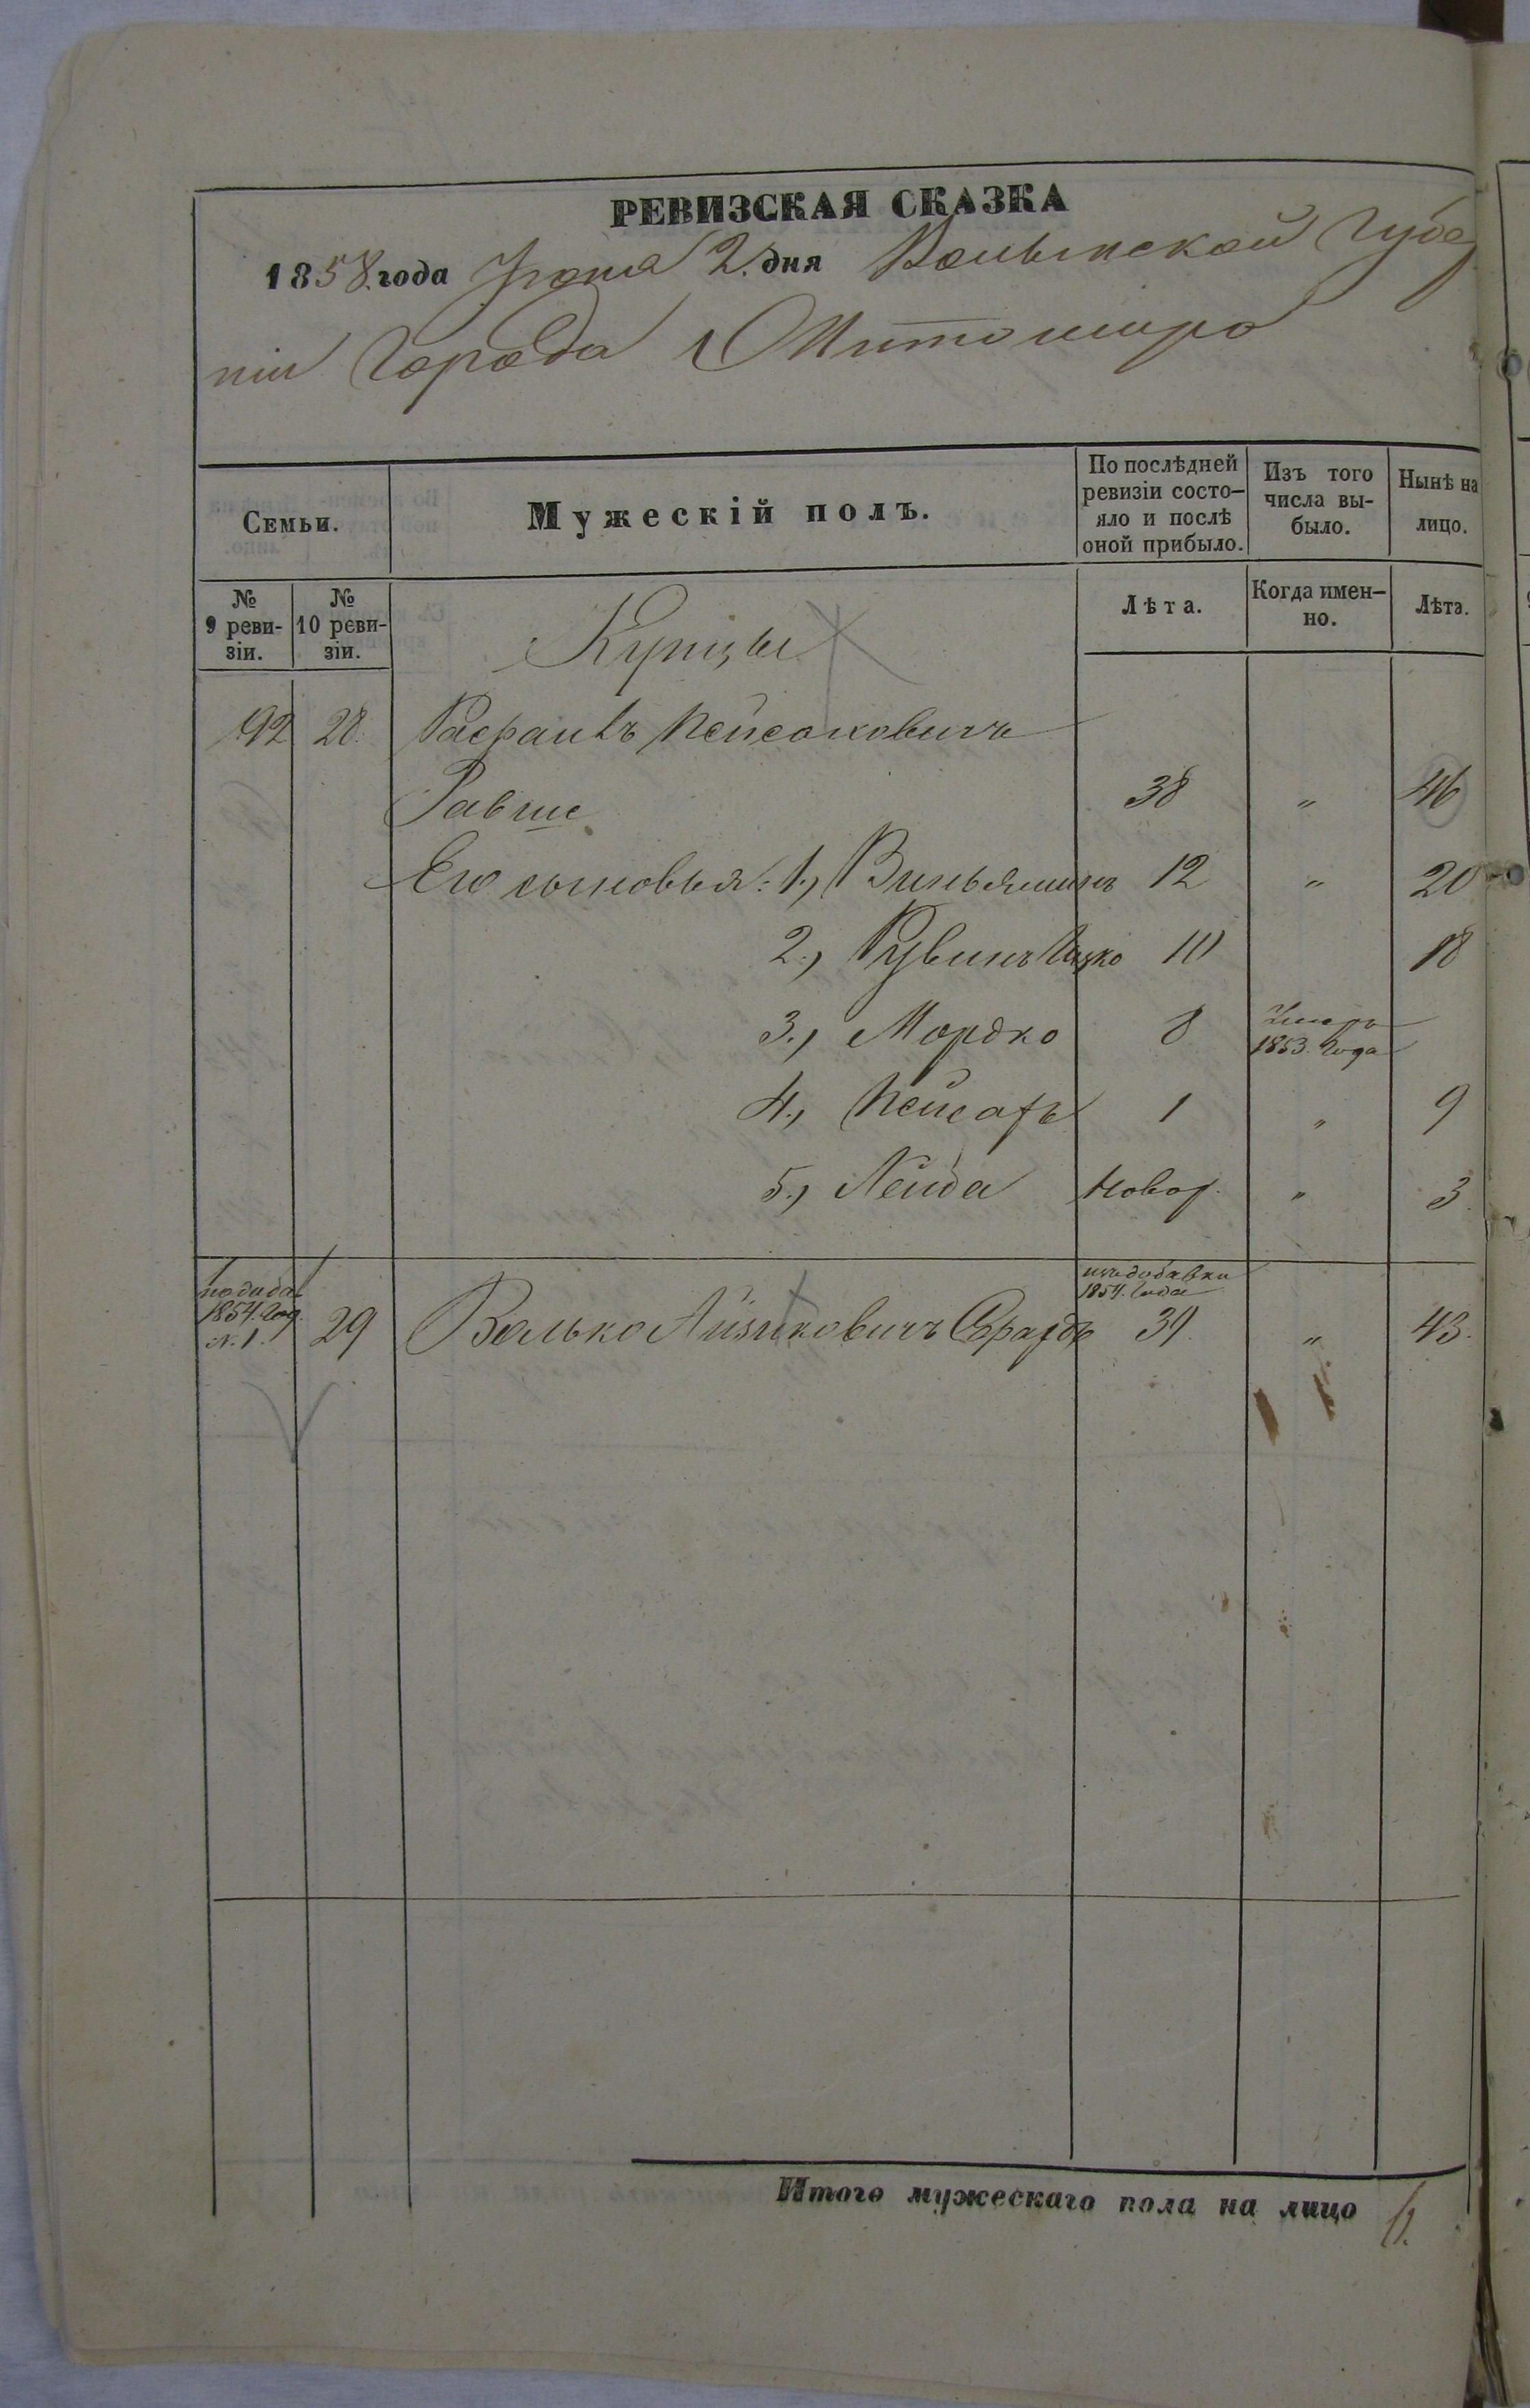 РЕВИЗСКАЯ СКАЗКА
1858 года Іюня 2. дня Волынской Губер
ніи Города Житомира
Семьи.
Мужескій полъ.
По послѣдней ревизіи состо-
яло и послѣ
оной прибыло.
Изъ того
числа вы-
было.
Нынѣ на
лицо.
№
9 реви-
зіи.
№
10 реви-
зіи.
Лѣта.
Когда имен-
но.
Лѣта.
Купцы
92 28. Пейсаковичъ
38 " 46
Его сыновья: 1., Виньяминъ 12 " 20
2., Рувинъ Ицко 10 18
3., Мордко 8 Умеръ
1853. Года
4., Пейсахъ 1 " 9
5., Лейба Новор. " 3
по добав
1854. Год.
N. 1. 29 Волько Айзиковичъ
изъ добавки
1854. Года
39 " 43.
Итого мужескаго пола на лицо 6.